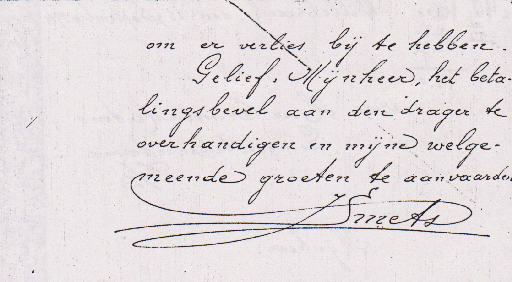 om er verlies bij te hebben.
Gelief, Mijnheer, het beta-
lingsbevel aan den drager te
overhandigen en mijne welge-
meende groeten te aanvaarden
JSmets